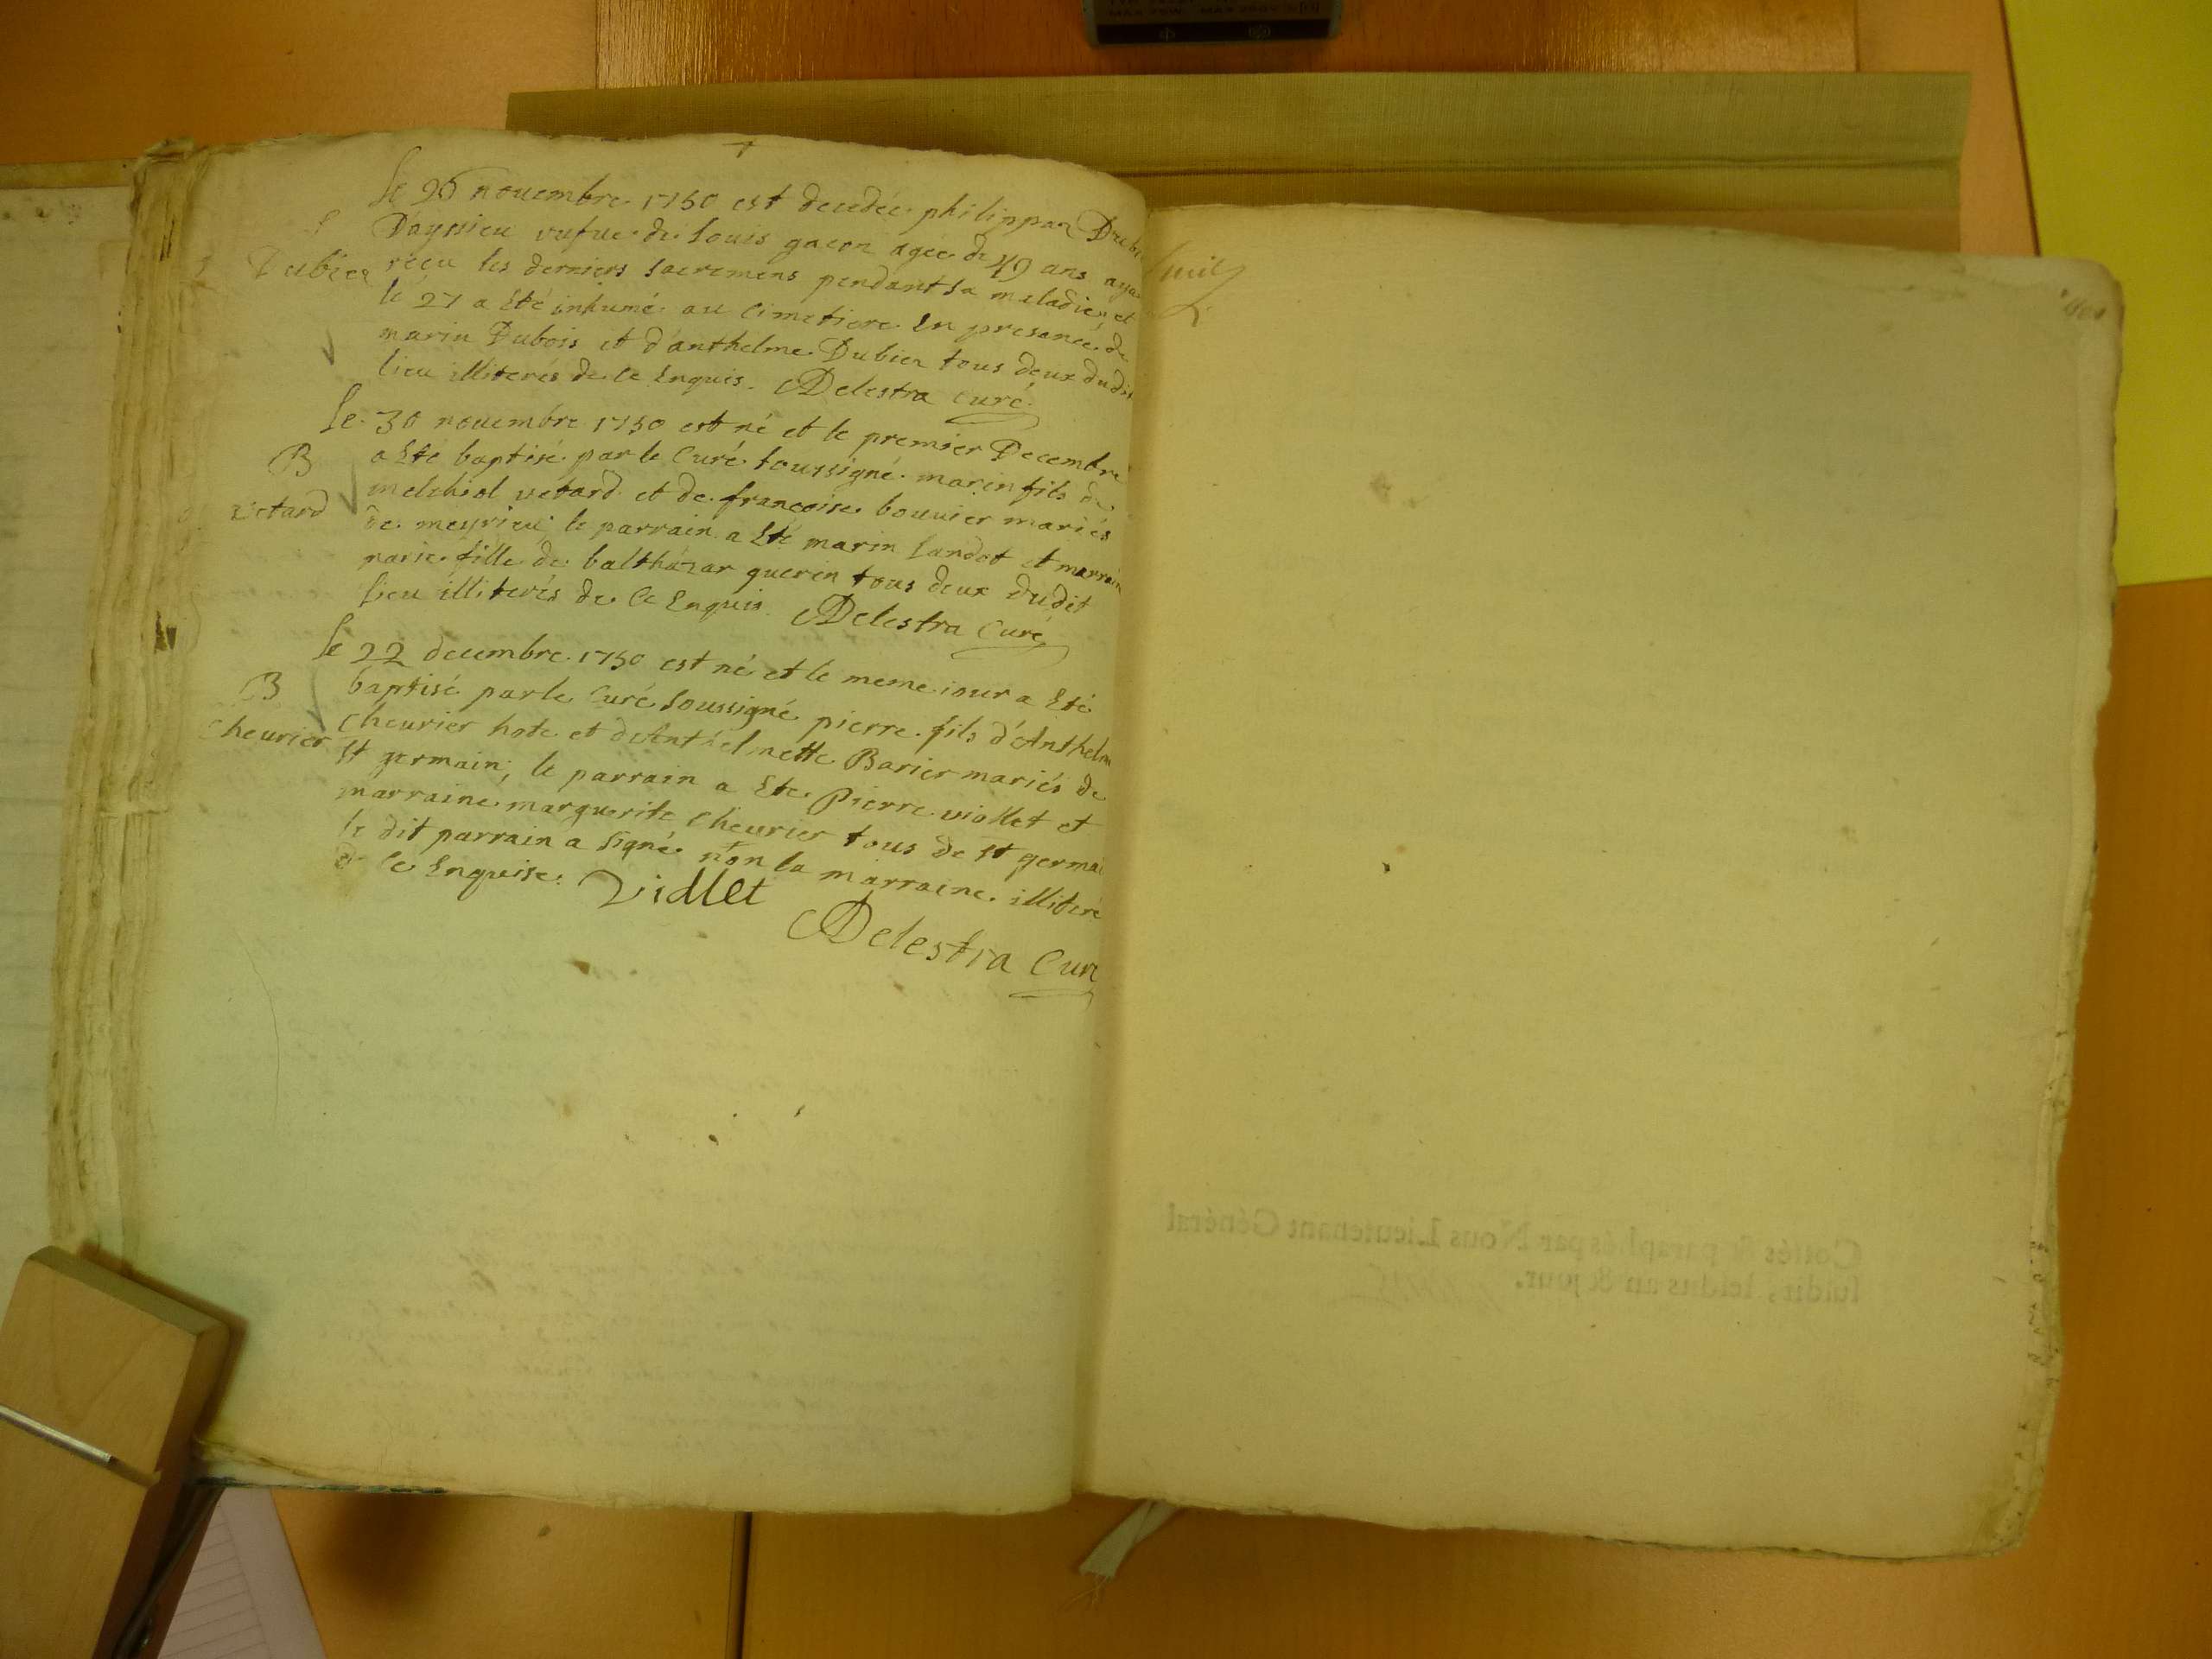 le 26 novembre 1750 est decedée philippaz Dubi
S
Dubier
Dayssieu vefue de louis gacon agée de 49 ans aya
reçu les derniers sacremens pendant sa maladie et
le 27 a été inhumé au cimetiere En presence de
marin Dubois et d'anthelme Dubier tous deux dudit
lieu illiterés de ce Enquis. Delestra curé
le 30 novembre 1750 est né et le premier Decembre
B
vetard
a Eté baptisé par le Curé soussigné marin fils de
melchiol vetard et de françoise bouvier mariés
de meyrieu; le parrain a Eté marin landot et marrain
marie fille de balthazar guerin tous deux dudit
lieu illiterés de Ce Enquis. Delestra Curé
le 22 decembre 1750 est né et le meme iour a Eté
B
Cheurier
baptisé par le Curé soussigné pierre fils d'Anthelm
Cheurier hote et d'Anthelmette Barier mariés de
st germain; le parrain a Eté pierre viollet et
marraine marguerite Cheurier tous de st germai
le dit parrain a signé non la marraine illiteré
de Ce Enquise. Viollet
Delestra Curé
Cottés & paraphés par Nous Lieutenant Général
susdit, lesdits an & jour.